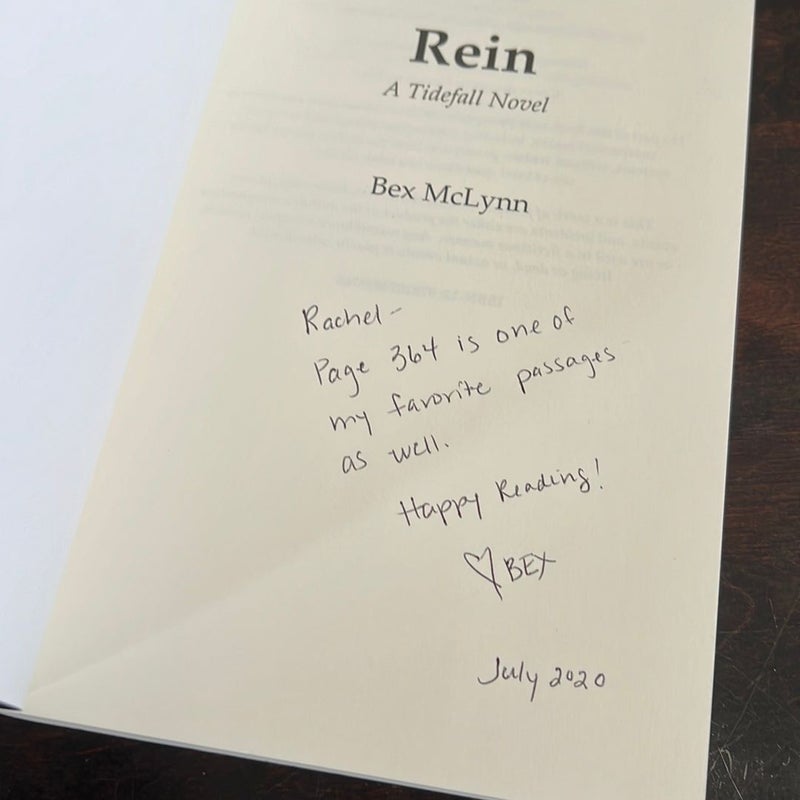 Rein
A Tidefall Novel
Bex McLynn
Rachel-
Page 364 is one of
my favorite passages
as well.
Happy Reading!
♡ BEX
July 2020